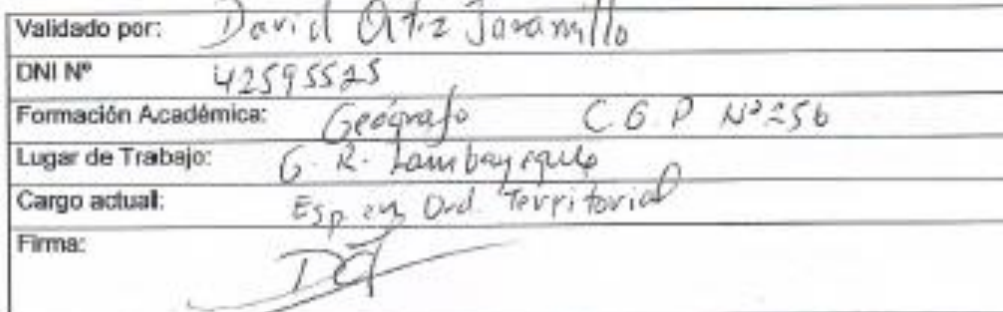 Validado por: David Ortiz Jaramillo
DNI Nº 42595525
Formación Académica: Geógrafo C G P Nº 256
Lugar de Trabajo: G. R. Lambayeque
Cargo actual: Esp en Ord. Territorial
Firma: